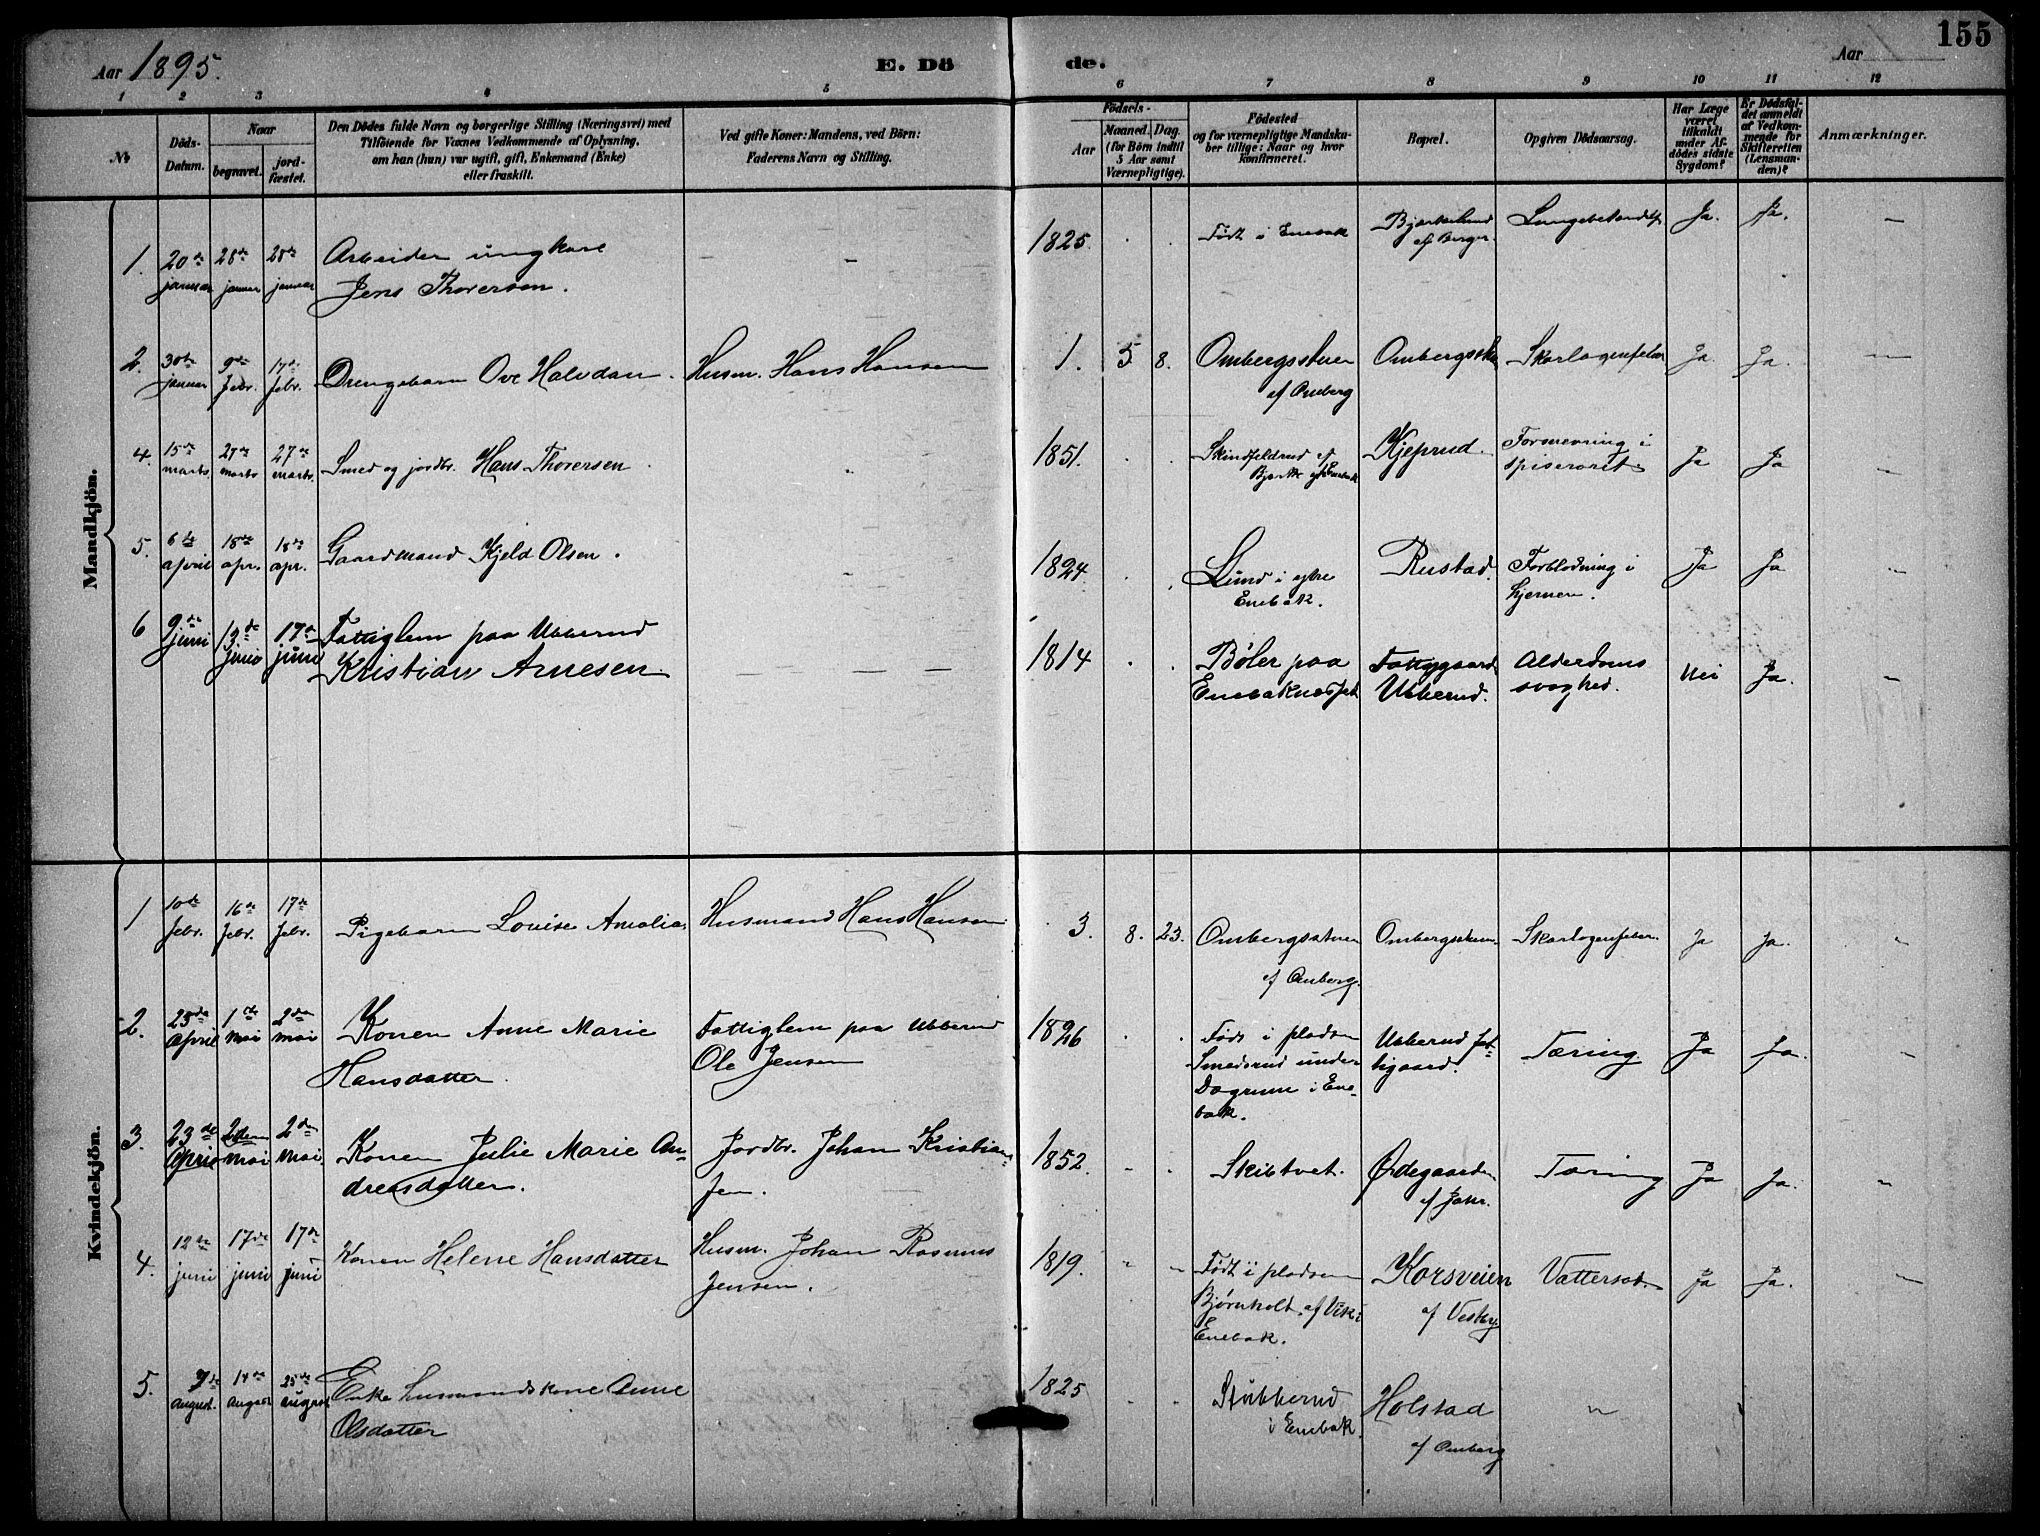 155
Aar 1895.
E. Dö
de.
Aar
1 2 3 4 5 6 7 8 9 10 11 12
No
Döds-
Datum.
Naar
begravet.
jord-
fæstet.
Den Dödes fulde Navn og borgerlige Stilling (Næringsvei) med
Tilföiende for Voxnes Vedkommende af Oplysning,
om han (hun) var ugift, gift, Enkemand (Enke)
eller fraskilt.
Ved gifte Koner: Mandens, ved Börn:
Faderens Navn og Stilling.
Födsels-
Aar
Maaned. Dag.
(for Börn indtil
5 Aar samt
Værnepligtige).
Födested
og for værnepligtige Mandsku-
ber tillige: Naar og hvor
konfirmeret.
Bopæl.
Opgiven Dödsaarsag.
Har Læge
været
tilkaldt
under Af-
dödes sidste
Sygdom?
Er Dödsfal-
det anmeldt
af Vedkom-
mende for
Skifteretten
(Lensman-
den)?
Anmærkninger.
Mandkjön.
1. 20de 28de 28de Arbeider ungkare
januar januar januar Jens Thoversen.
1825. Født i Enebak
af Berger.
Ja. Ja.
2. 30te 9de 17de
januar febr. febr. Drengebarn Ove Halvdan. Husm. Hans Hansen
1. 5 8. Ombergsstuen
af Omberg
Ja Ja.
4. 15de 27de 27de
marts marts. marts. Smed og jordbr. Hans Thorersen
1851. Kjeprud. Forsnevring i
spiserøret
Ja Ja
5. 6te 18de 18de Gaardmand Kjeld Olsen.
april apr. apr.
1824. Lund i ytre
Enebak.
Rustad. Forblødning i
hjernen.
Ja Ja
6 9de 13de 17de Fattiglem paa Ubberud
juni juni juni Kristian Arnesen.
1814 Bøler paa
Fattiggaard
Ubberud.
Alderdoms
svaghed.
Nei Ja.
Kvindekjön.
1 10de 16de 17de
febr. febr. febr. Pigebarn Lovise Amalia Husmand Hans Hansen
3. 8. 23. Ombergsstuen
af Omberg.
Skarlagensfeber.
Ja Ja.
2. 23de 1ste 2den Konen Anne Marie Fattiglem paa Ubberud
april mai mai Hansdatter. Ole Jensen
1826 Født i pladsen
Smedsrud under
Dagrum i Ene-
bak.
Ubberud fat-
tigaard.
Tæring. Ja Ja.
3. 23de 2den 2den Konen Julie Marie An- Jordbr. Johan Kristian-
April mai mai. dreasdatter. sen.
1852. Skibtvet. Ødegaarden
af Jahr.
Tæring Ja Ja.
4. 12te 17de 17de Konen Helene Hansdatter Husm. Johan Rasmus
juni juni juni Jensen.
1819. Født i pladsen
Bjørnholt. af Vik i
Enebak.
Korsveien
af Vestby
Vattersot. Ja Ja.
5. 7de 14de 25de Enke husmandskone Anne
august. august august Olsdatter
1825 Stubberud
i Enebak.
Holstad
af Omberg